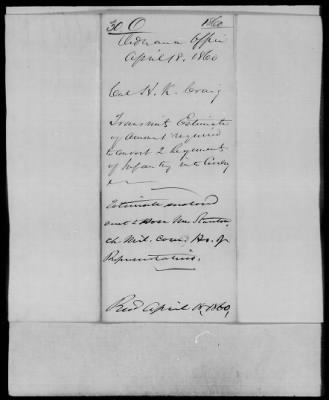 30 O 1860
Ordnance Office
April 18, 1860
Col H. K. Craig
Transmits Estimate
of amount required
to convert 2 Regiments
of Infantry into Cavalry
Estimate enclosed
sent to Hon Mr Stanton
ch Mil. Com. Ho. of
Representatives.
Recd April 18, 1860,